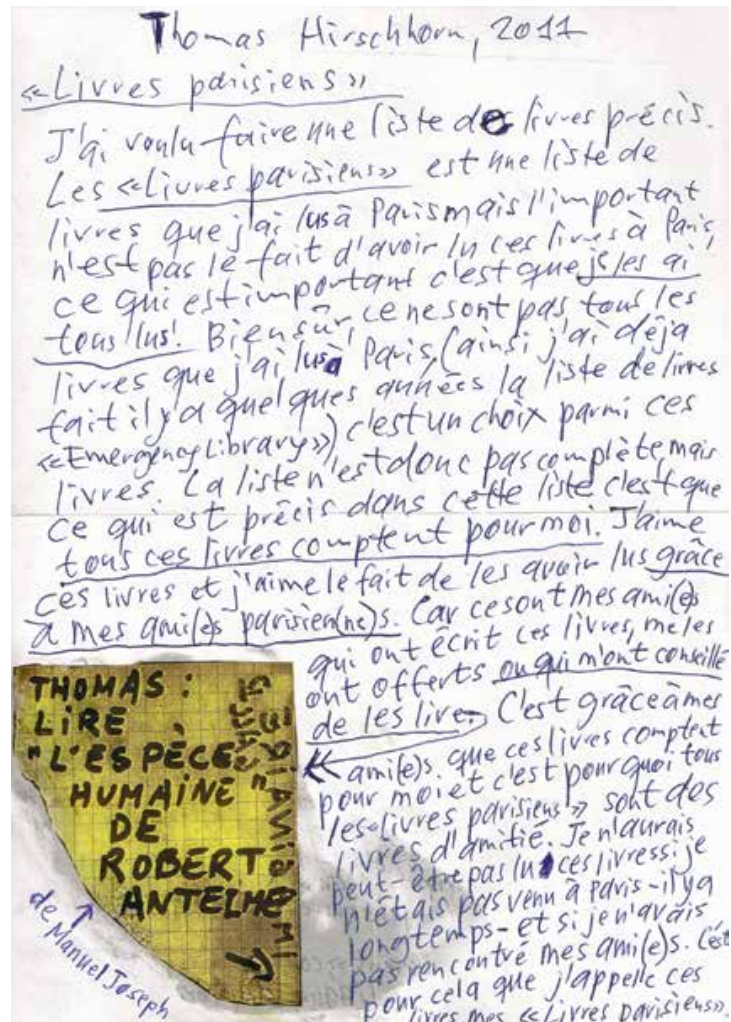 Thomas Hirschhorn, 2011
«Livres parisiens»
J'ai voulu faire une liste de livres précis.
Les «Livres parisiens» est une liste de
livres que j'ai lus à Paris mais l'important
n'est pas le fait d'avoir lu ces livres à Paris,
ce qui est important c'est que je les ai
tous lus! Bien sûr, ce ne sont pas tous les
livres que j'ai lus à Paris, (ainsi j'ai déjà
fait il y a quelques années la liste de livres
«Emergency Library») c'est un choix parmi ces
livres. La liste n'est donc pas complète, mais
ce qui est précis dans cette liste c'est que
tous ces livres comptent pour moi. J'aime
ces livres et j'aime le fait de les avoir lus grâce
à mes ami(e)s parisien(ne)s. Car ce sont mes ami(e)s
qui ont écrit ces livres, me les
ont offerts ou qui m'ont conseillé
de les lire. C'est grâce à mes
ami(e)s que ces livres comptent
pour moi et c'est pourquoi tous
les «Livres parisiens» sont des
livres d'amitié. Je n'aurais
peut-être pas lu ces livres si je
n'étais pas venu à Paris - il y a
longtemps - et si je n'avais
pas rencontré mes ami(e)s. C'est
pour cela que j'appelle ces
livres mes «Livres parisiens».
THOMAS :
LIRE
"L'ESPÈCE
HUMAINE"
DE
ROBERT
ANTELME
de Manuel Joseph